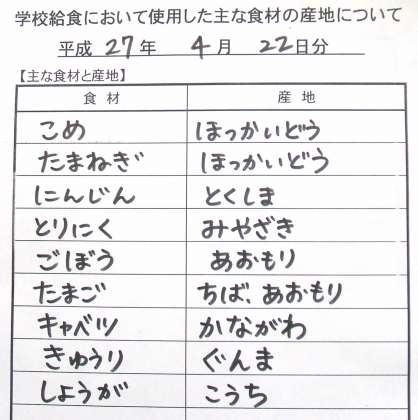 学校給食において使用した主な食材の産地について
平成 27年 4月 22日分
【主な食材と産地】
食材 産地
こめ ほっかいどう
たまねぎ ほっかいどう
にんじん とくしま
とりにく みやざき
ごぼう あおもり
たまご ちば、あおもり
キャベツ かながわ
きゅうり ぐんま
しょうが こうち